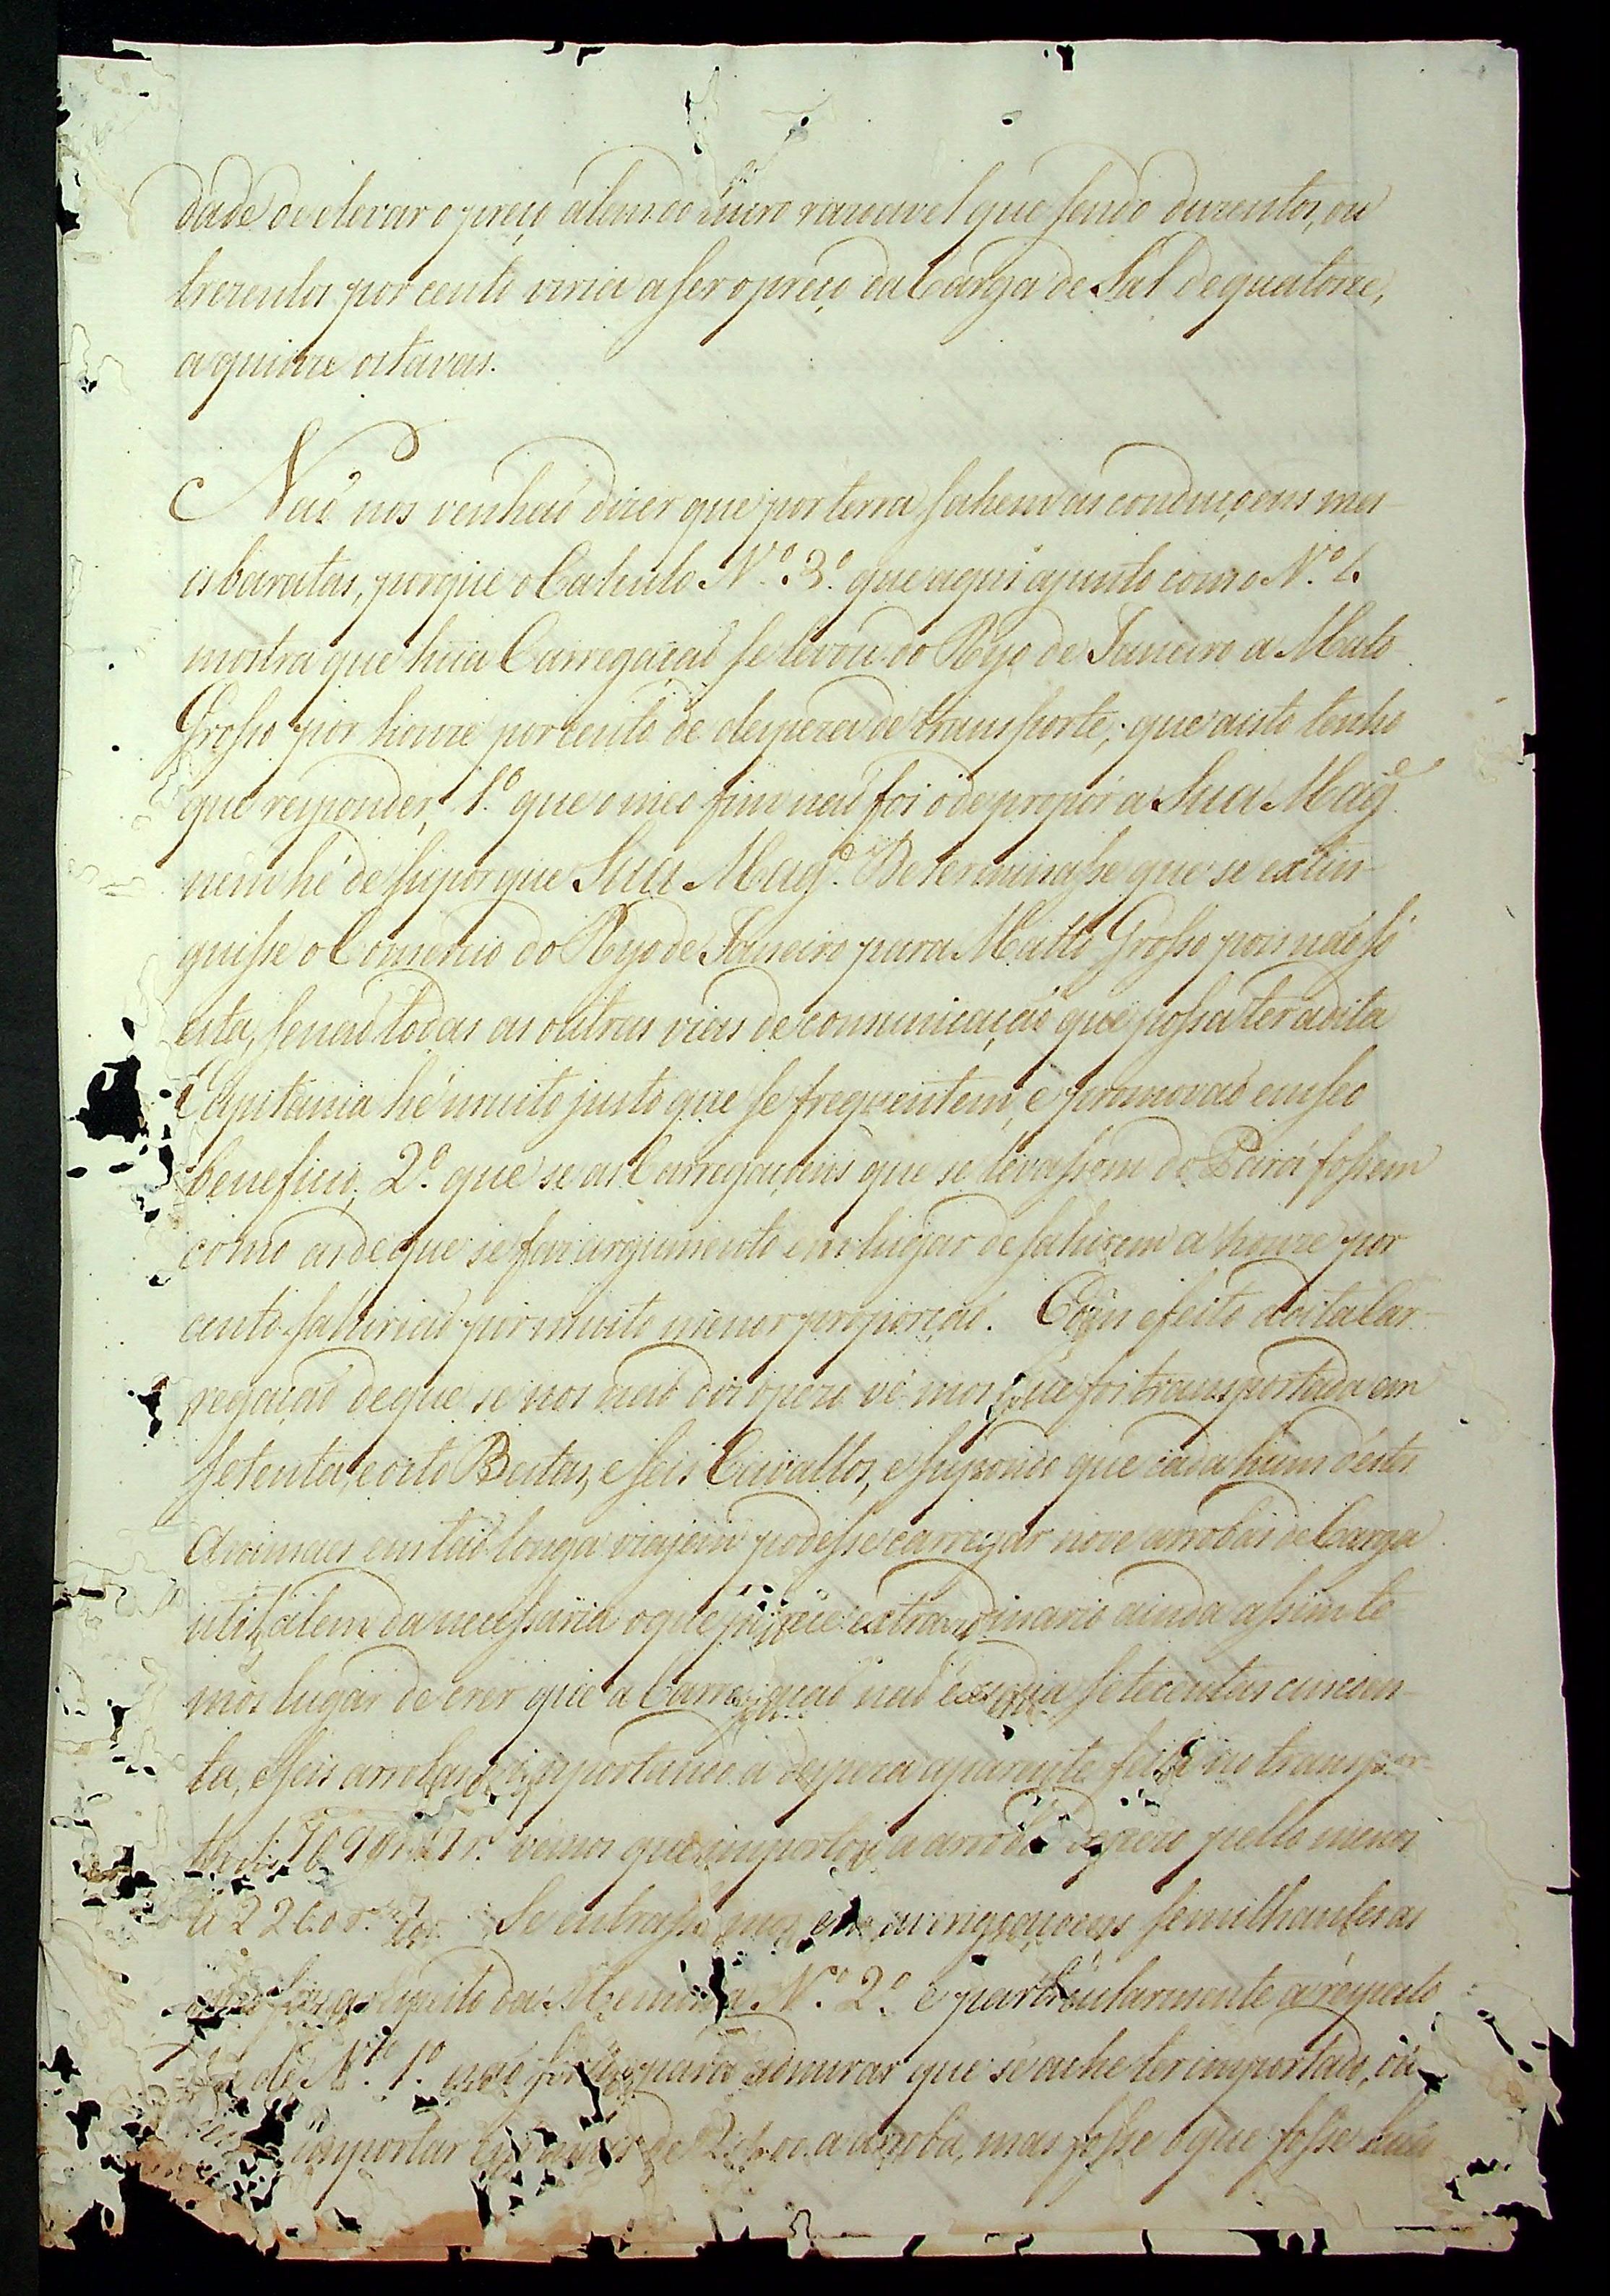 dade de elevar o preço alem do lucro razoavel que sendo duzentos, ou
trezentos por cento viria a ser o preço da Carga de Sal de quatorze,
a quinze oitavas.
Naõ nos venhaõ dizer que por terra sahem as conduçoens ma-
is baratas, porque o Calculo N.º 3.º que aqui ajunto como N.º 4
mostra que huã Carregaçaõ se levou do Ryo de Janeiro a Mato
Grosso por honze por cento de despeza de transporte; que a isto tenho
que responder, 1.º que o meo fim naõ foi o de propôr a Sua Mag.e
nem hé de supor que Sua Mag.e Determinasse que se extin-
guisse o Comercio do Ryo de Janeiro para Matto Grosso pois naõ só
esta, senaõ todas as outras vias de comunicaçaõ que possa ter a dita
Capitania hé muito justo que se frequentem, e promovaõ em seo
beneficio, 2.º que se as Carregaçoens que se levassem do Pará fossem
como as de que se faz argumento em lugar de sahirem a honze por
cento sahiriaõ por muito menor proporçaõ. Com efeito a dita Car-
regaçaõ de que se nos naõ diz o pezo vê mos que foi transportada em
setenta, e oito Bestas, e seis Cavallos, e supondo que cada hum déstes
Animaes em taõ longa viajem podesse carregar nove arrobas de Carga
util, alem da necessaria o que parece extraordinario ainda assim te
mos lugar de crer que a Carregaçaõ naõ excedia setecentas cincoen-
ta, e seis arrobas, e importando a despeza aparente feita no transpor-
te de r.s vemos que importou a arroba de pezo pello menos
a 2200 r.s Se entrassemos em averiguaçoens semilhantes as
que fiz a respeito da Memoria N.º 2.º e particularmente a respeito
da de N.º 1.º naõ para admirar que se ache ter importado, ou
importar de a arroba, mas fosse o que fosse huã